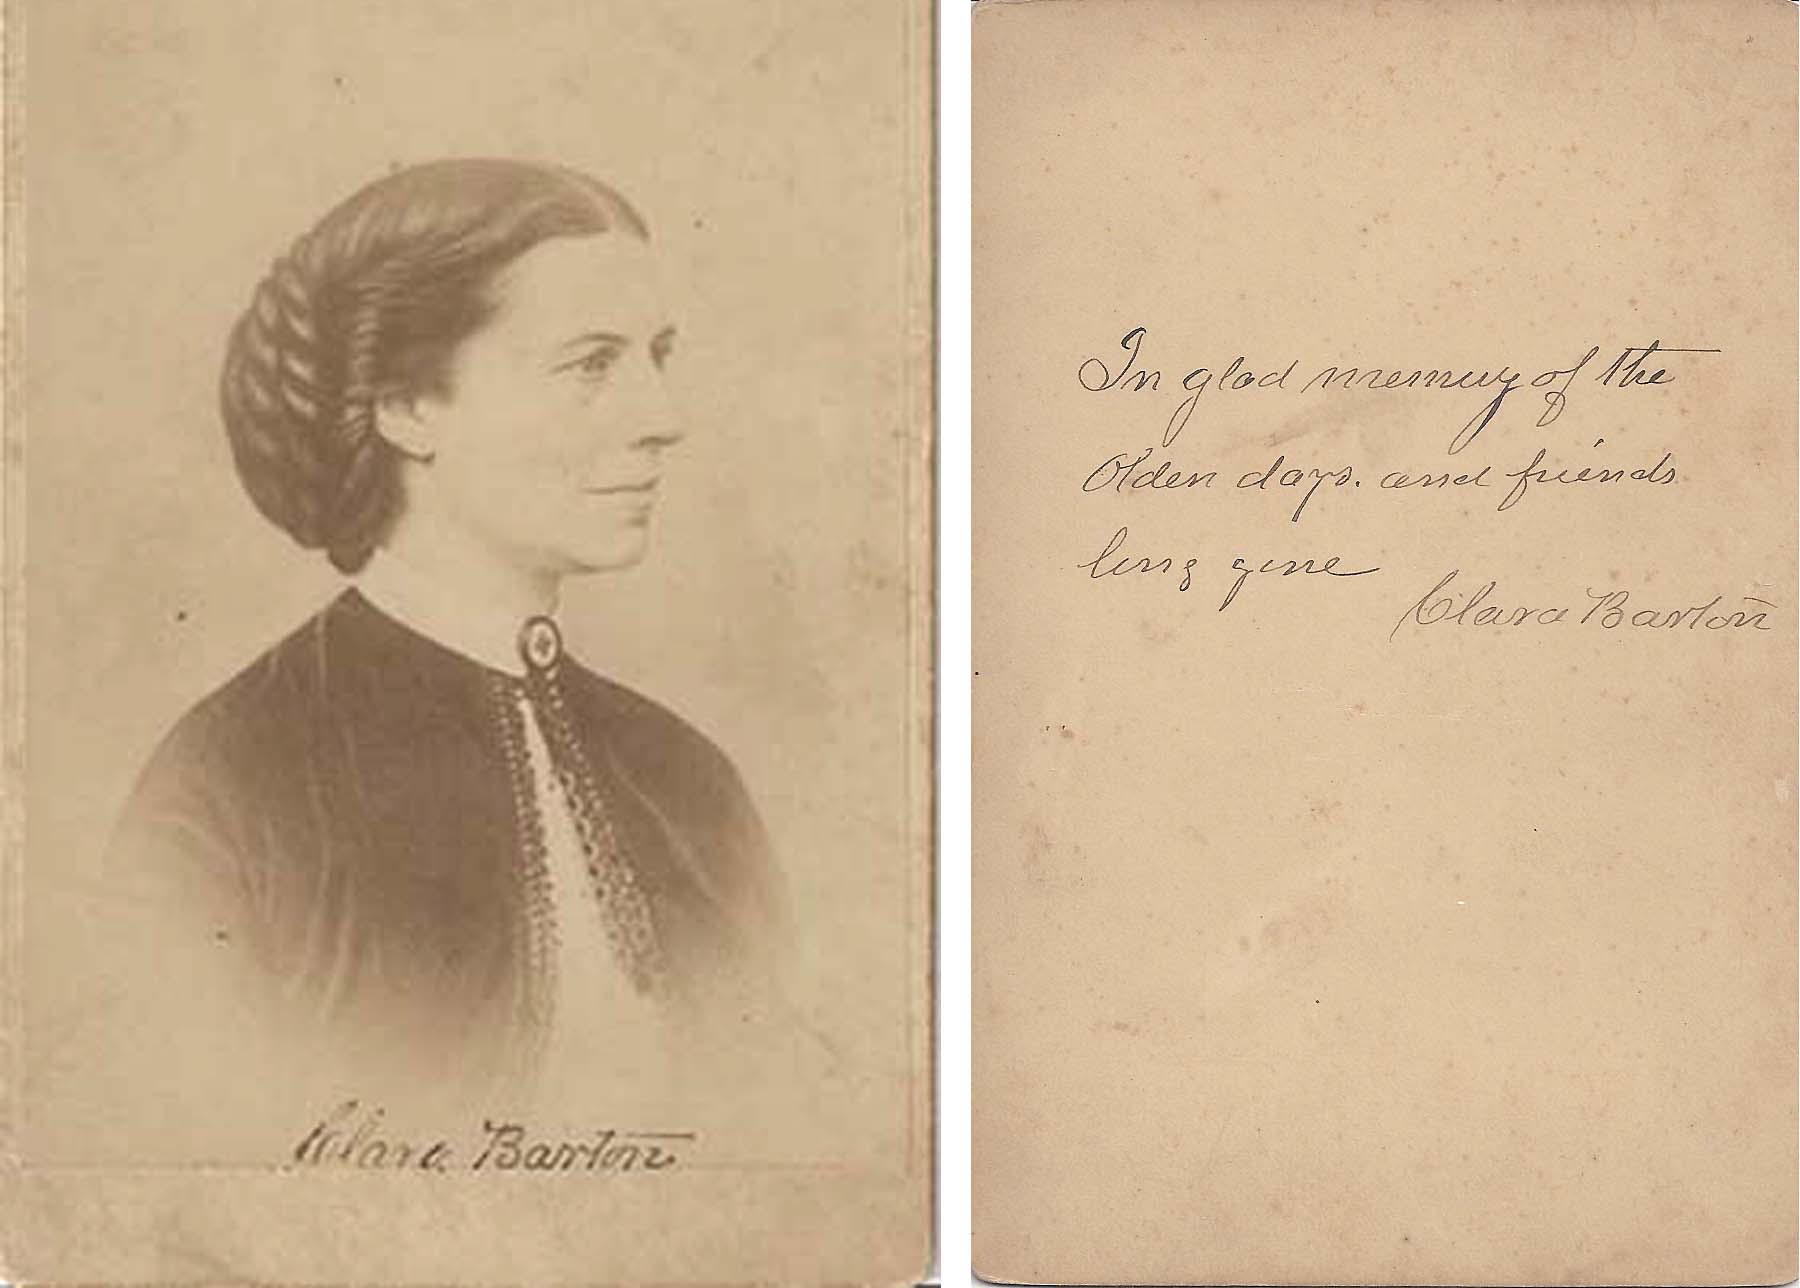 Clara Barton
In glad memory of the
Olden days. and friends
long gone
Clara Barton